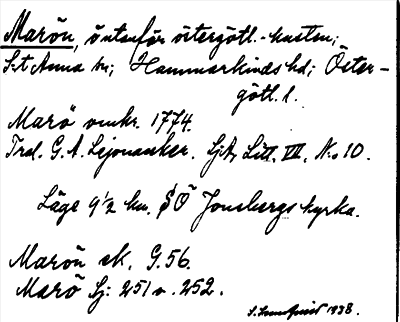 Marön, ö utanför östergötl.-kusten;
S:t Anna sn; Hammarkinds hd; Öster-
götl. l.
Marö omkr. 1774.
Trol. G. A. Lejonanker. LjA, Litt. VII. No 10.
Läge 9½ km. SO Jonsbergs kyrka.
Marön ek. G. 56.
Marö Lj: 251 o. 252.
S. Lundqvist 1938.